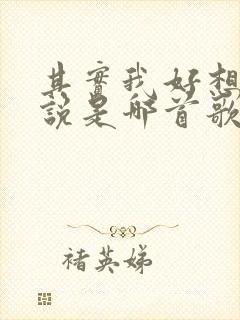 其實我好想
說是哪首歌
褚英娣